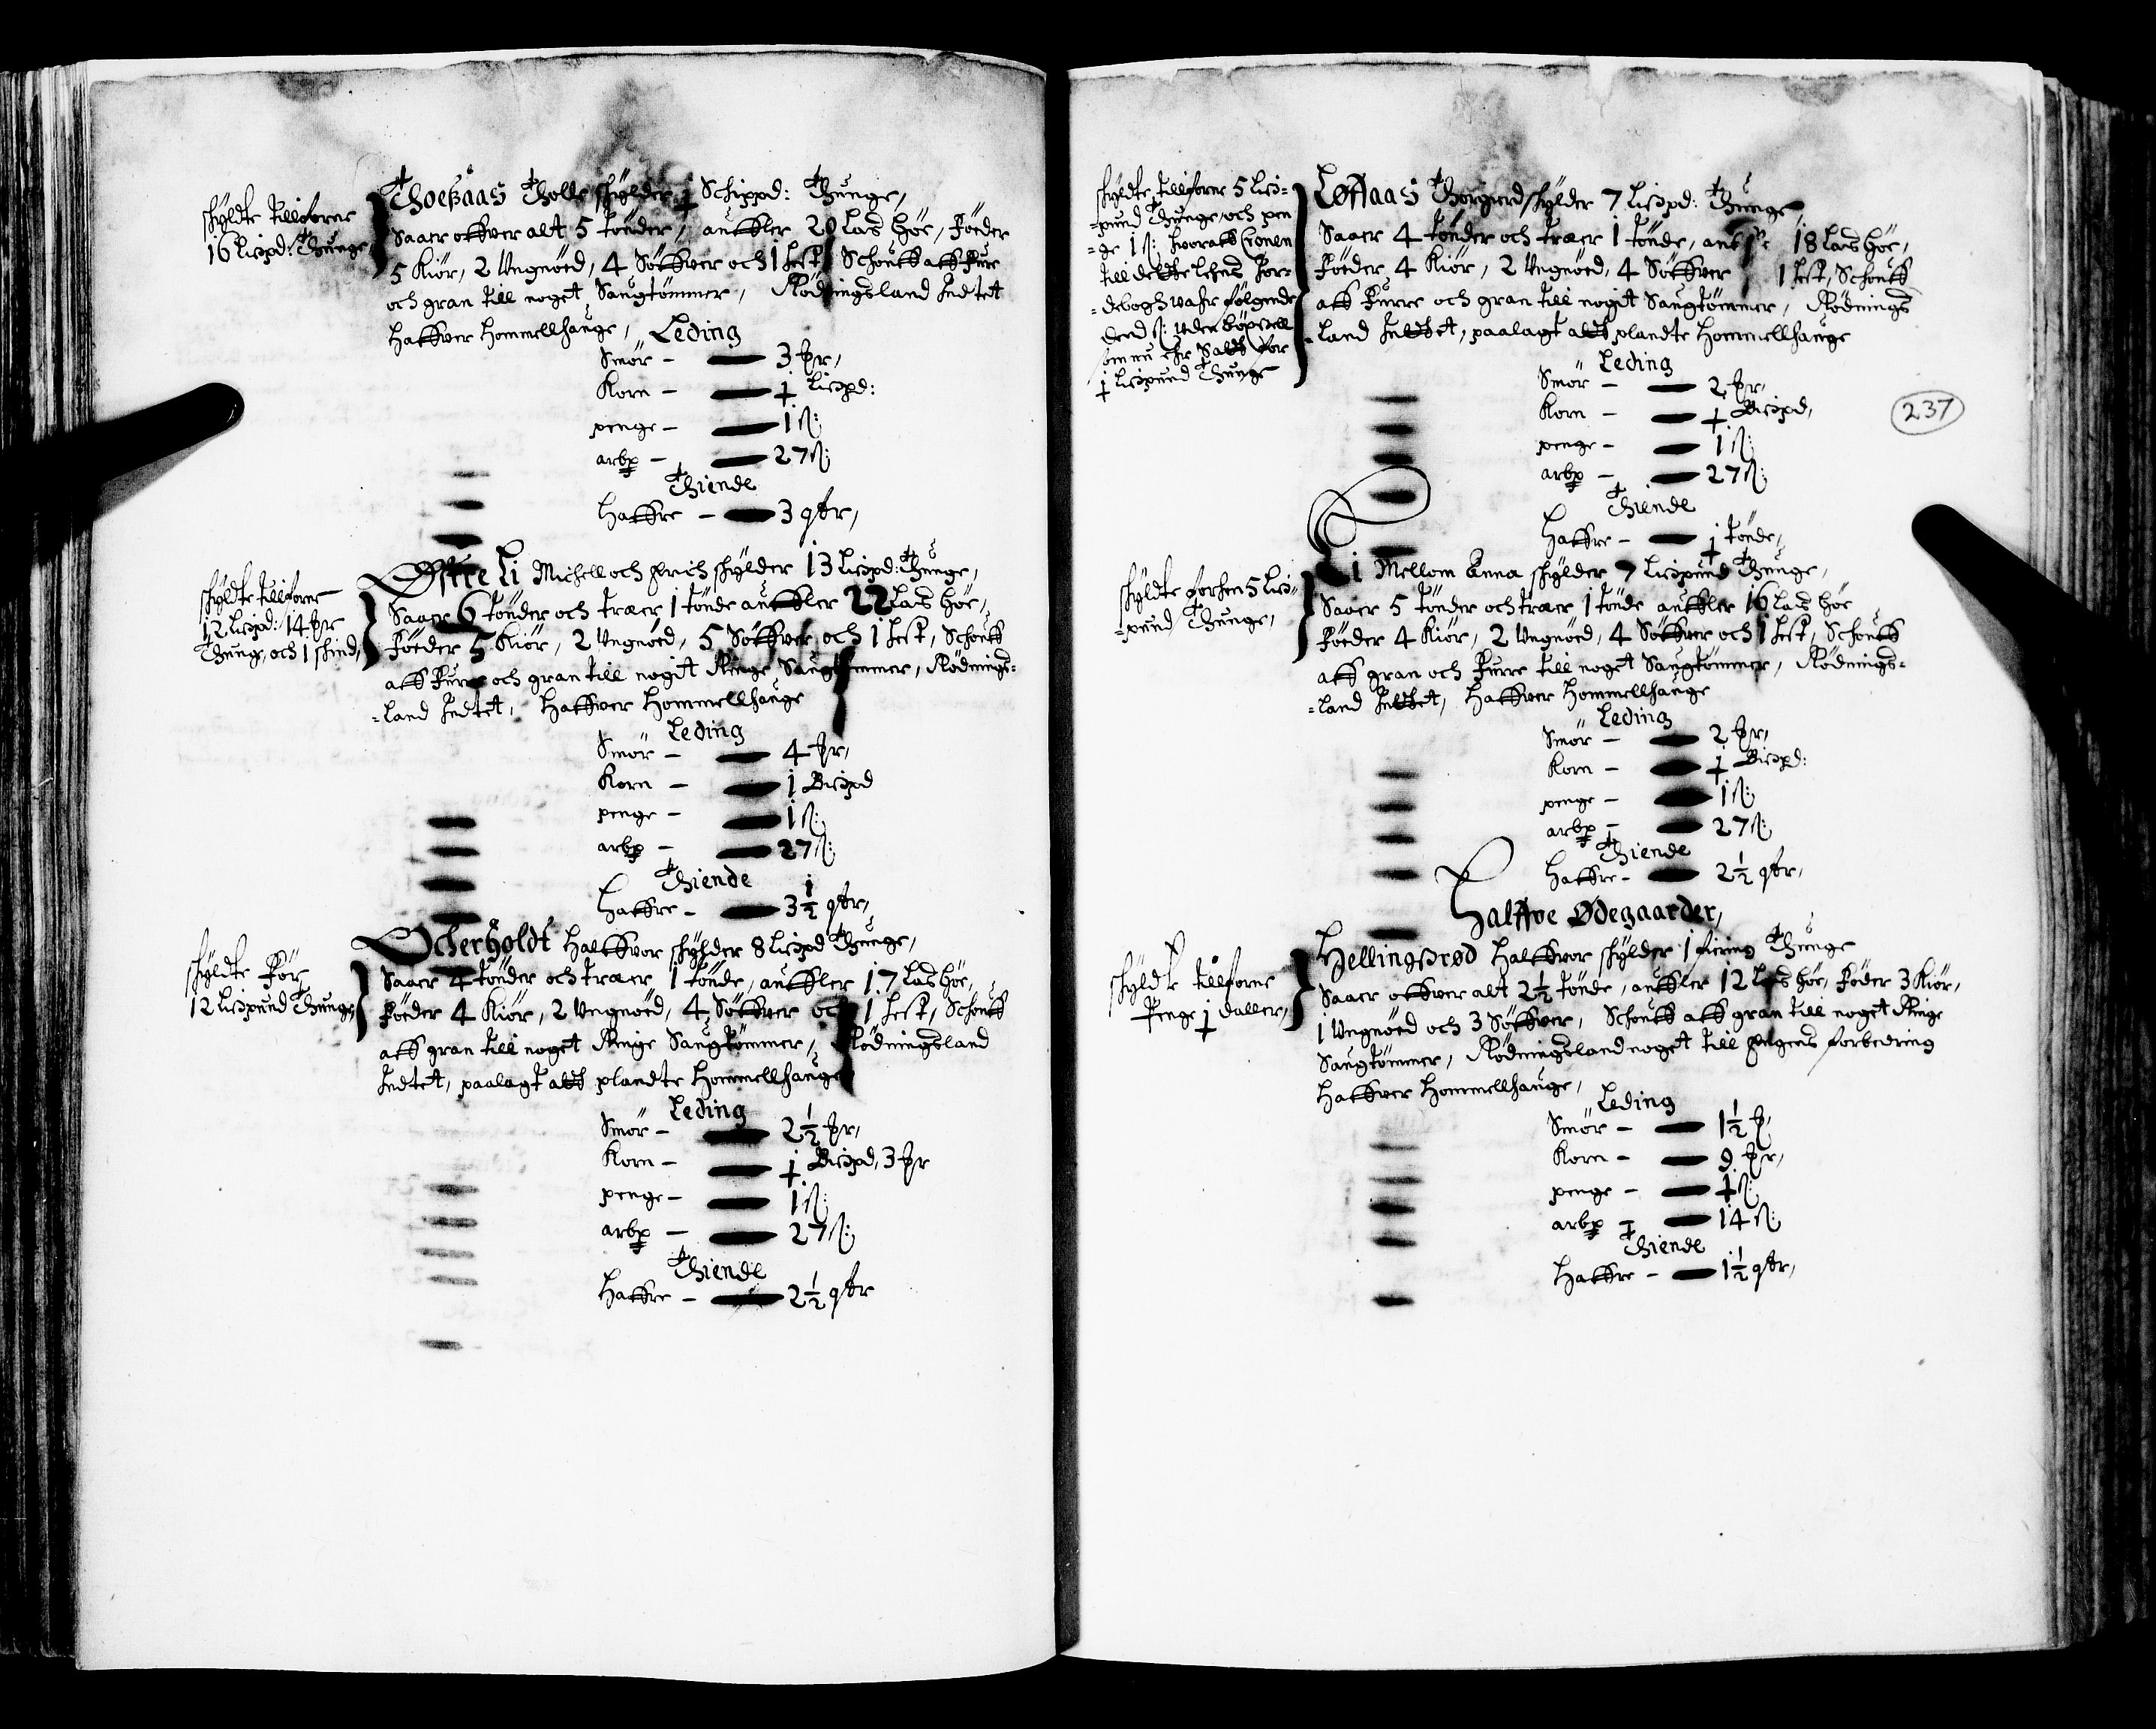 skyldte tillforne
16 Lispd: Thunge
Thoesaas Tholle skylder ½ Schippd: Thunge,
Saaer offwer alt 5 tønder, auffler 20 Las høe, Føeder
5 Kiør, 2 Ungnøed, 4 Søffwer och 1 Hest, Schouff aff Fure
och gran till noget Saugtømmer, Rødningsland Indtet
haffwer Hommellhauge,
Leding
Smør — 3 #r,
Korn — ½ Lispd:
penge — 1 ß:
arbp — 27 ß:
Thiende
Haffre — 3 qtr,
skyldte tillforne
12 Lispd: 14 #r
Thung, och 1 skind,
Østre Li Michell och Erich skylder 13 Lispd: Thunge,
Saaer 6 tønder och træer 1 tønde auffler 22 Las høe,
Føeder 5 Kiør, 2 Ungnøed, 5 Søffwer och 1 Hest, Schouff
aff Furre och gran till nogit Ringe Saugtømmer, Rødnings=
=land Indtet, haffwer Hommellhauge
Leding
Smør — 4 #r,
Korn — 1 Bispd
penge — 1 ß:
arbp — 27 ß:
Thiende
Haffre — 3½ qtr,
skyldte Før
12 Lispund Thunge,
Ocherholdt Halffvor skylder 8 Lispd Thunge,
Saaer 4 tønder och træer 1 tønde, auffler 17 Las høe,
Føeder 4 Kiør, 2 Ungnøed, 4 Søffwer och 1 Hest, Schouff
aff gran till noget Ringe Saugtømmer, Rødningsland
Indtet, paalagt att plandte Hommellhauge
Leding
Smør — 2½ #r,
Korn — ½ Bispd, 3 #r
penge — 1 ß:
arbp — 27 ß:
Thiende
Haffre — 2½ qtr
skyldte tillforne 5 Lis=
=pund Thunge, och pen
=ge 1 ß: hvoraff Cronen
till dette Lehns Jor=
=debogh wafr følgende
deed ß: uden bøxell
som nu ehr Satt for
½ Lispund Thunge
Løffaas Thorgierd skylder 7 Lispd: Thunge,
Saaer 4 tønder och træer 1 tønde, auffler 18 Las høe,
Føeder 4 Kiør, 2 Ungnøed, 4 Søffwer 1 Hest, Schouff
aff Furre och gran till nogit Saugtømmer, Rødnings
=land Indtet, paalagt att plandte Hommellhauge
Leding
Smør — 2 #r,
Korn — ½ Bispd,
penge — 1 ß:
arbp — 27 ß:
237
Thiende
Haffre — ½ tønde,
skyldte forhen 5 Lis=
=pund Thunge,
Li Mellom Anna skylder 7 Lispund Thunge,
Saaer 5 tønder och træer 1 tønde auffler 16 Las høe
Føeder 4 Kiør, 2 Ungnøed, 4 Søffwer och 1 Hest, Schouff
aff gran och Furre till noget Saugtømmer, Rødnings=
=land Indtet, haffwer Hommellhauge
Leding
Smør — 2 #r,
Korn — ½ Bispd:
penge — 1 ß:
arbp — 27 ß:
Thiende
Haffre — 2½ qtr,
Halffve Ødegaarder,
skyldte tillforne
Penge ½ daller,
Hellingsrød Halffvor skylder 1 fiering Thunge
Saaer offwer alt 2½ tønde, auffler 12 Las høe, Føder 3 Kiør,
1 Ungnøed och 3 Søffwer, Schouff aff gran till noget Ringe
Saugtømmer, Rødningsland noget till Engens forbedring
haffwer Hommellhauge,
Leding
Smør — 1½ #
Korn — 9 #r,
penge — ½ ß:
arbp — 14 ß:
Thiende
Haffre — 1½ qtr,